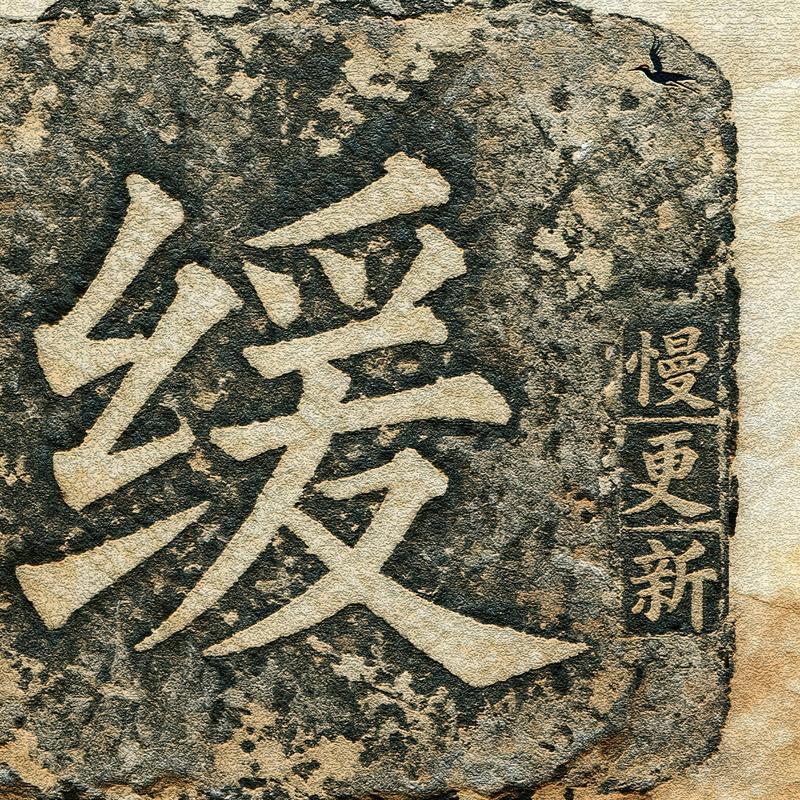 缓
慢更新